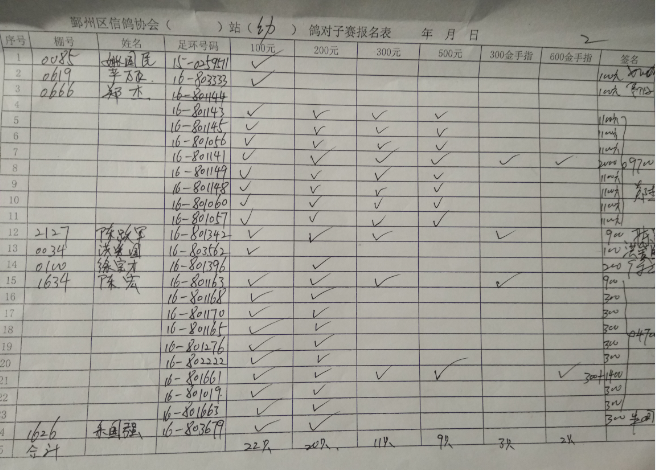 鄞州区信鸽协会（ ）站（幼）鸽对子赛报名表 年 月 日 2
序号 棚号 姓名 足环号码 100元 200元 300元 500元 300金手指 600金手指 签名
1 0085 姚国民 15-025951 ✓
2 0619 16-803333 ✓ 100
3 0666 郑杰 16-801144 100
4 16-801143 ✓ ✓ ✓ ✓
5 16-801145 ✓ ✓ ✓ ✓ 1100
6 16-801056 ✓ ✓ ✓ ✓ 1100
7 16-801141 ✓ ✓ ✓ ✓ ✓ ✓ 2000 09700
8 16-801149 ✓ ✓ ✓ ✓ 1100
9 16-801148 ✓ ✓ ✓ ✓ 1100
10 16-801060 ✓ ✓ ✓ ✓ 1100
11 16-801057 ✓ ✓ ✓ ✓ 1100
12 2127 16-801342 ✓ ✓ ✓ ✓ 900
13 0034 洪荣国 16-803562 ✓ 100
14 0100 徐宝才 16-801396 ✓ 200
15 1634 陈宏 16-801163 ✓ ✓ ✓ ✓ 900
16 16-801168 ✓ ✓ 300
17 16-801170 ✓ ✓ 300
18 16-801165 ✓ ✓ 300 04700
19 16-801276 ✓ ✓ 300
20 16-802222 ✓ ✓ 300
21 16-801661 ✓ ✓ ✓ ✓ ✓ 300+1400
22 16-801019 ✓ ✓ 300
3 16-801663 ✓ ✓ 300
4 1626 朱国强 16-803679 ✓ ✓ 300
5 合计 22只 20只 11只 9只 3只 2只